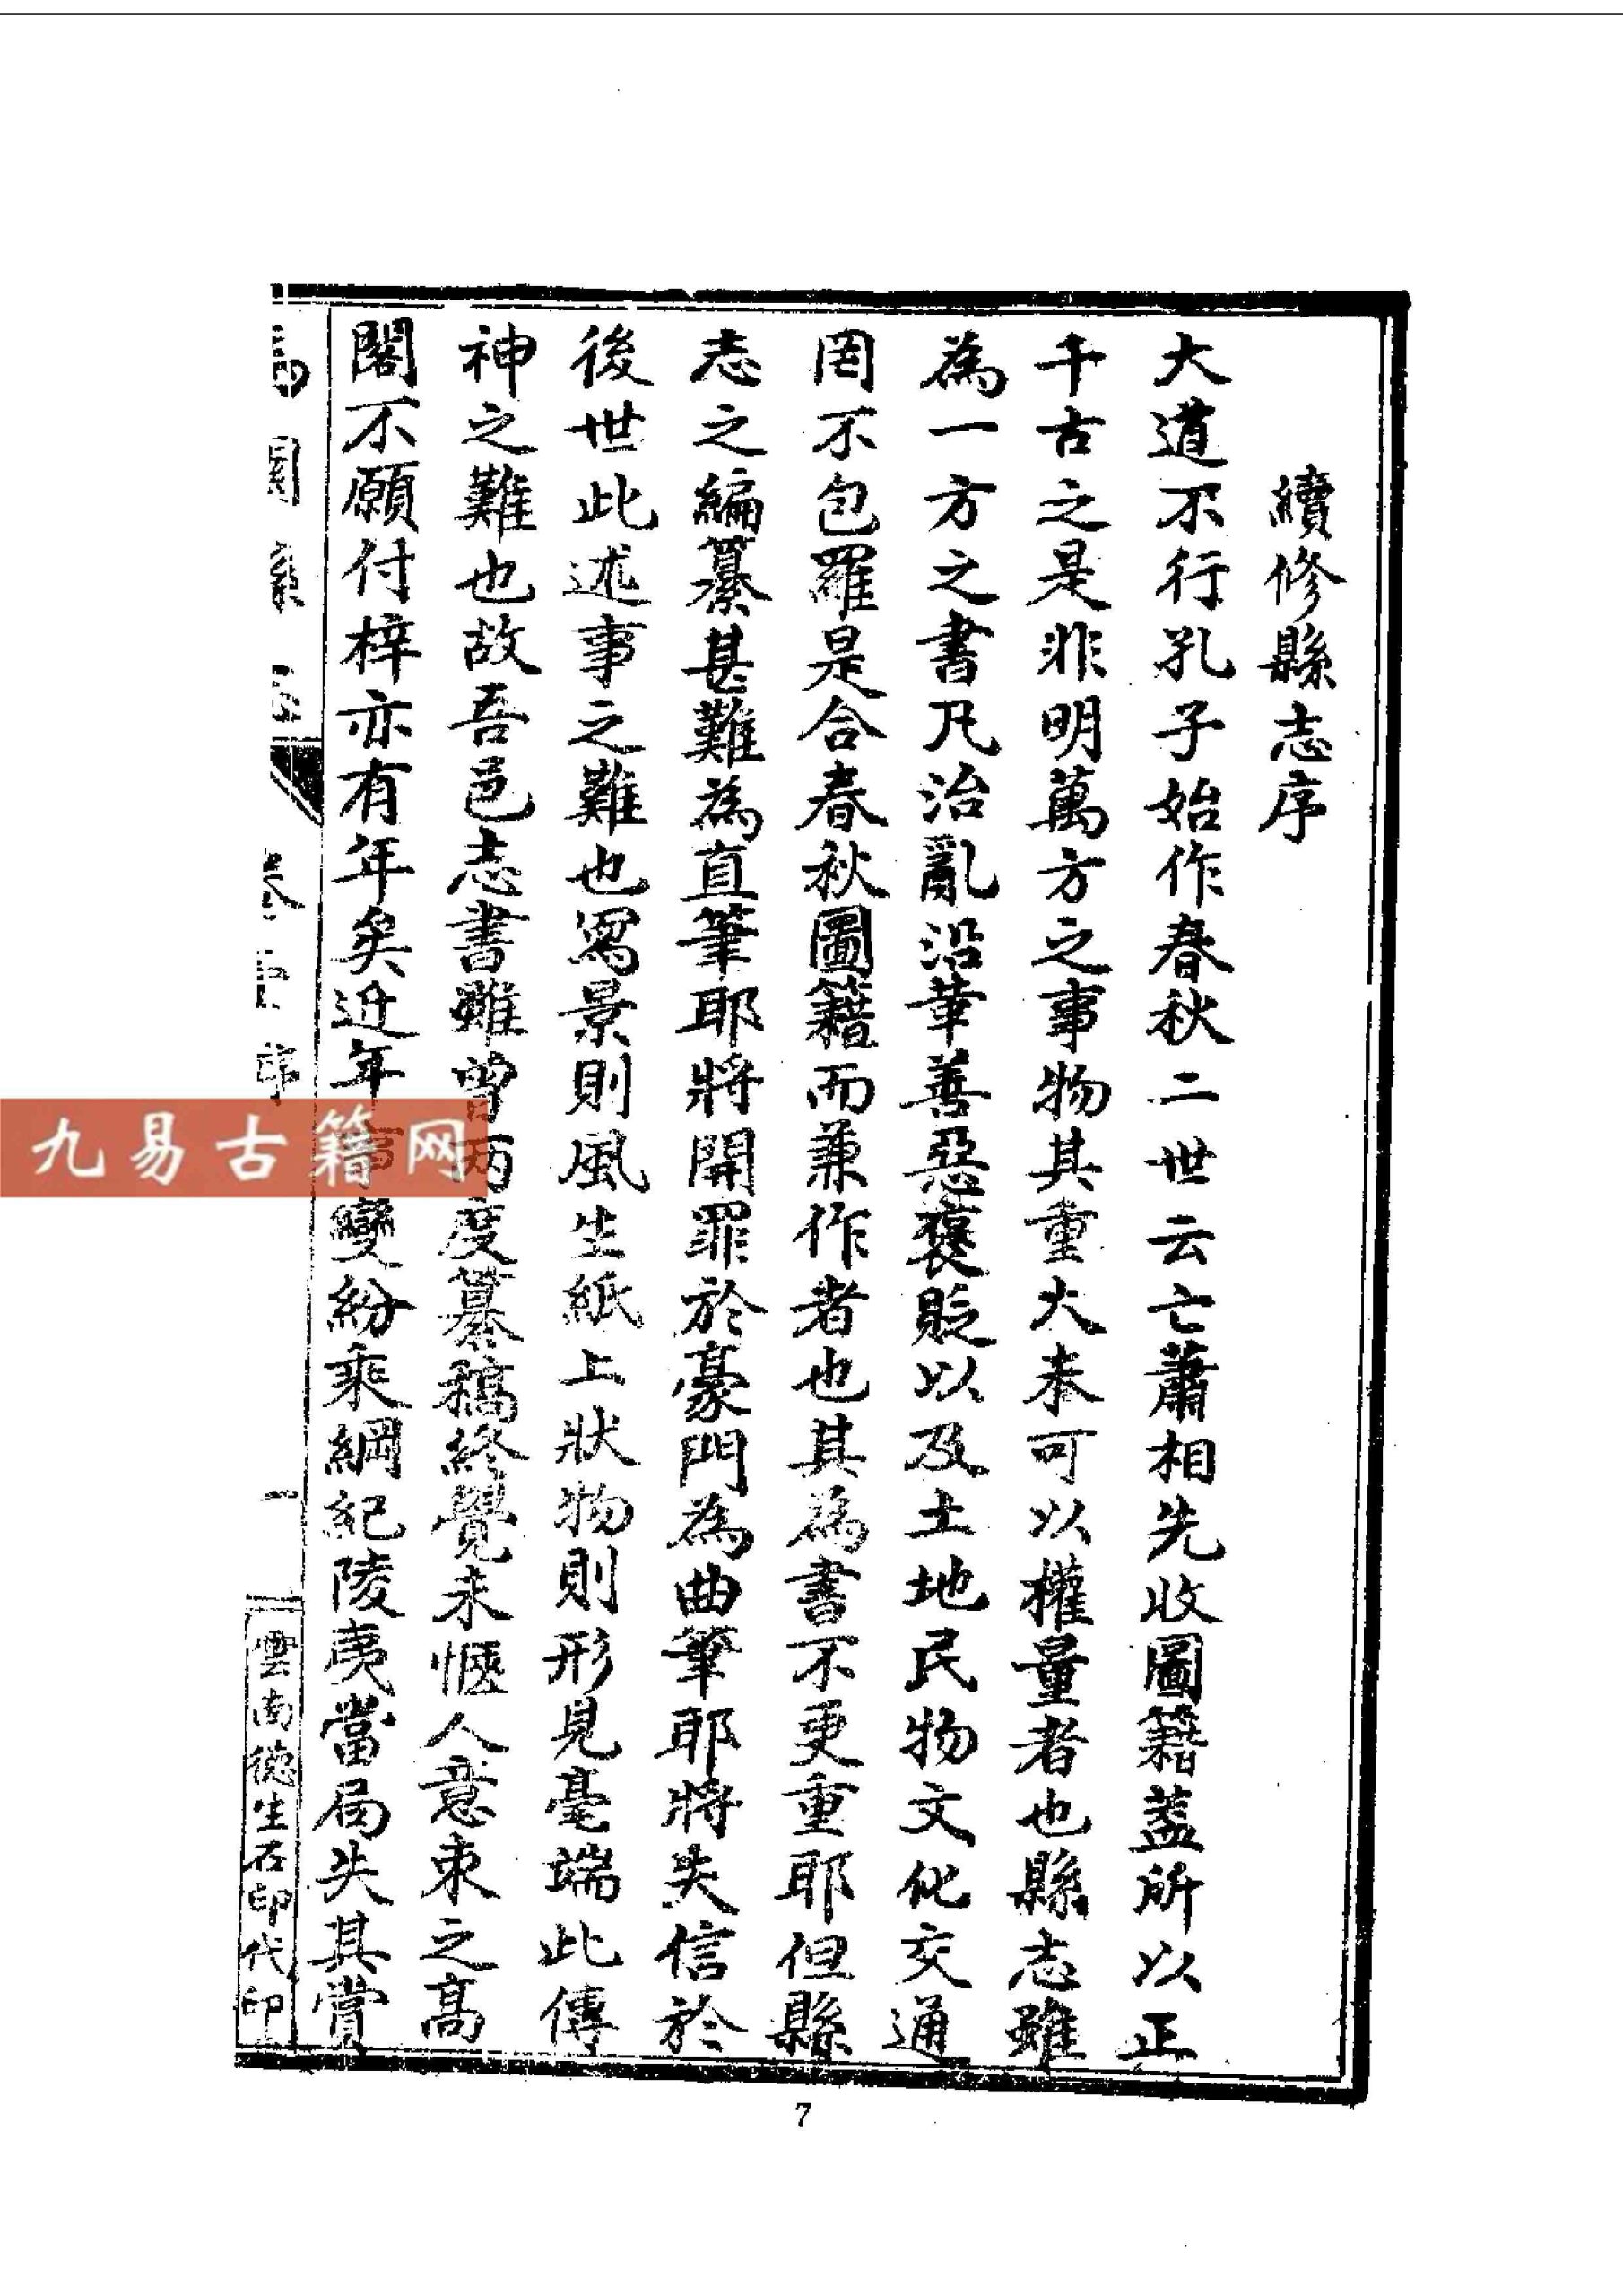 續修縣志序
大道不行孔子始作春秋二世云亡蕭相先收圖籍蓋所以正
千古之是非明萬方之事物其重大未可以權量者也縣志雖
為一方之書凡治亂沿革善惡褒貶以及土地民物文化交通
罔不包羅是合春秋圖籍而兼作者也其為書不更重耶但縣
志之編纂甚難為直筆耶將開罪於豪門為曲筆耶將失信於
後世此述事之難也寫景則風生紙上狀物則形見毫端此傳
神之難也故吾邑志書雖曾兩度纂稿終覺未愜人意束之高
閣不願付梓亦有年矣近年事變紛乘綱紀陵夷當局失其賞
一
雲南德生石印代印
九易古籍网
7